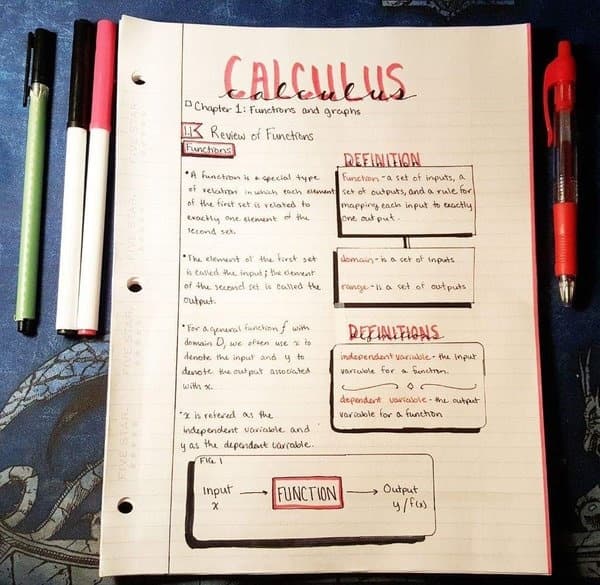 CALCULUS
calculus
Chapter 1: Functions and graphs
1.1 Review of Functions
Functions
•A function is a special type
of relation in which each element
of the first set is related to
exactly one element of the
second set.
•The element of the first set
is called the input; the element
of the second set is called the
output.
•For a general function f with
domain D, we often use x to
denote the input and y to
denote the output associated
with x.
•x is refered as the
independent variable and
y as the dependent variable.
DEFINITION
Function - a set of inputs, a
set of outputs, and a rule for
mapping each input to exactly
one output.
domain - is a set of inputs
range - is a set of outputs
DEFINITIONS
definitions
independent variable - the input
variable for a function.
dependent variable - the output
variable for a function
FIG. 1
Input → FUNCTION → Output
x y/f(x)
FIVE STAR
FIVE STAR
FIVE STAR